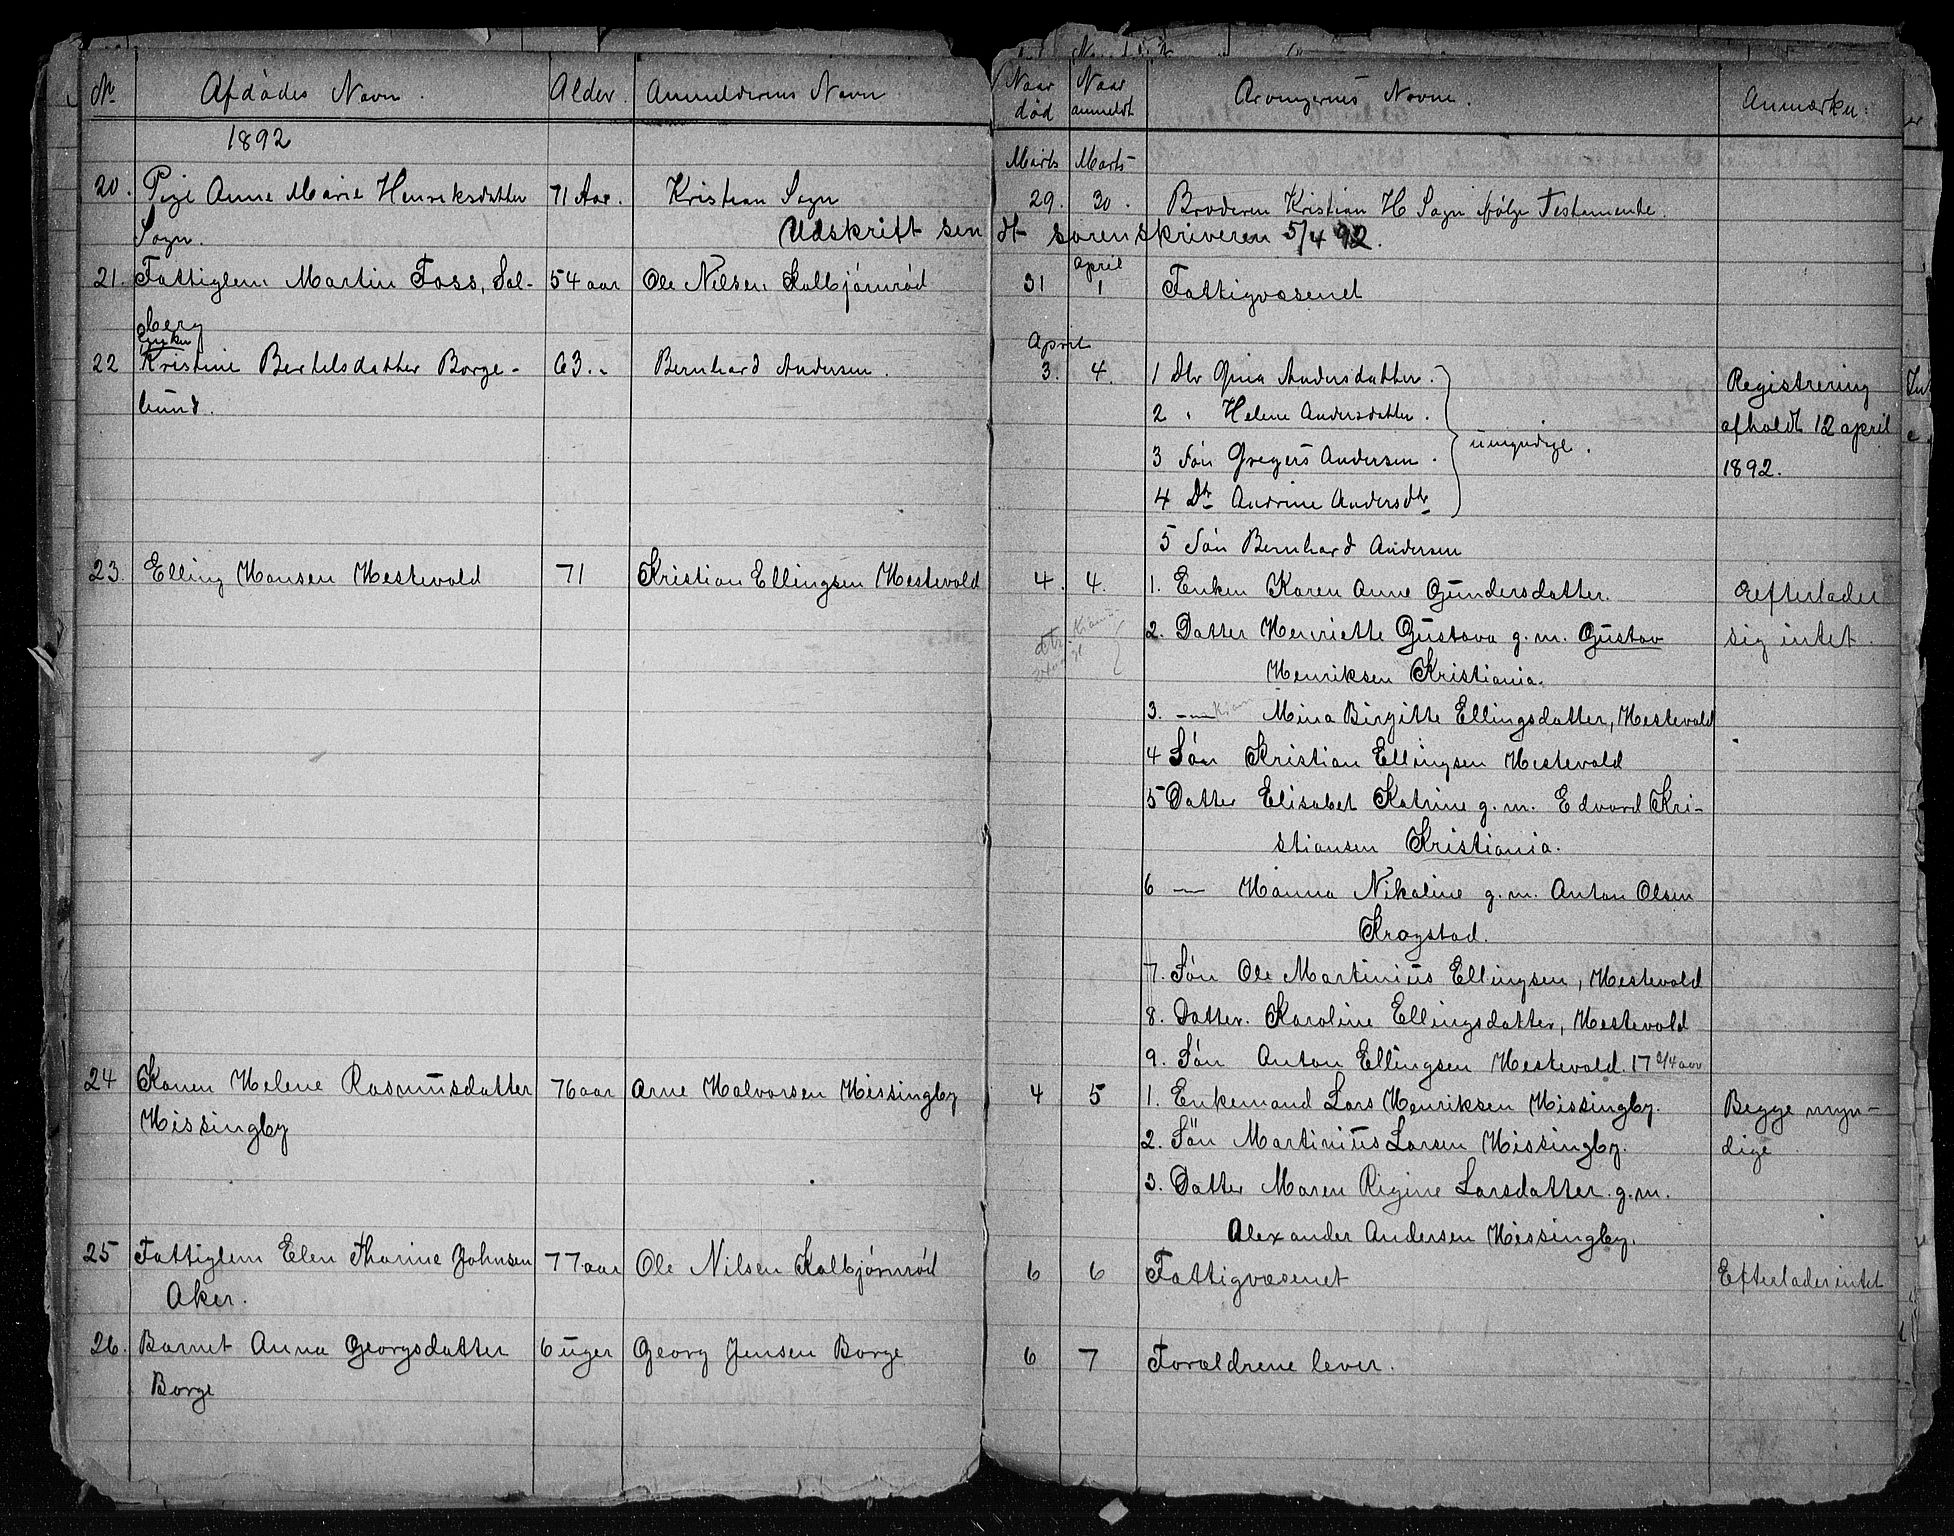 No Afdødes Navn. Alder. Anmelderens Navn
1892
20. Pige Anne Marie Henriksdatter 71 Aar. Kristian Sogn
Sogn. Udskrift sen
21. Fattiglem Martin Foss, Sol- 54 aar Ole Nilsen Kolbjørnrød
berg
Enke
22 Kristine Bertelsdatter Borge- 63. „ Bernhard Andersen.
lund.
23. Elling Hansen Hestevold 71 Kristian Ellingsen Hestevold
24 Karen Helene Rasmusdatter 76 aar Arne Halvorsen Missingby
Missingby
25 Fattiglem Elen Thorine Johnsen 77 aar Ole Nilsen Kolbjørnrød
Aker.
26. Barnet Anna Georgsdatter 6 uger Georg Jensen Borge
Borge
Naar Naar Arvingernes Navne. Anmærkn.
død anmeldt
Marts Marts
29. 30. Broderen Kristian H Sogn ifølge Testamente.
dt sorenskriveren 5/4 92.
April
31 1 Fattigvæsenet
April
3. 4. 1 Dtr Gina Andersdatter. Registrering
2 „ Helene Andersdatter. afholdt 12 april
3 Søn Gregers Andersen. umyndige. 1892.
4 Dtr Andrine Andersdtr
5 Søn Bernhard Andersen
4. 4. 1. Enken Karen Anne Gundersdatter. Eefterlader
2. Datter Henriette Gustava g.m. Gustav sig intet
Henriksen Kristiania.
3. — Mina Birgitte Ellingsdatter, Hestevold
4 Søn Kristian Ellingsen Hestevold
5 Datter Elisabet Katrine g.m. Edvard Kri-
stiansen Kristiania.
6 — Hanna Nikoline g.m. Anton Olsen
Krogstad.
7. Søn Ole Martinius Ellingsen, Hestevold
8. Datter. Karoline Ellingsdatter, Hestevold
9. Søn Anton Ellingsen Hestevold. 17 2/4 aar
4 5 1. Enkemand Lars Henriksen Missingby. Begge myn-
2. Søn Martinius Larsen Missingby. dige
3. Datter Maren Regine Larsdatter g.m.
Alexander Andersen Missingby.
6 6 Fattigvæsenet Efterlader intet
6 7 Forældrene lever.